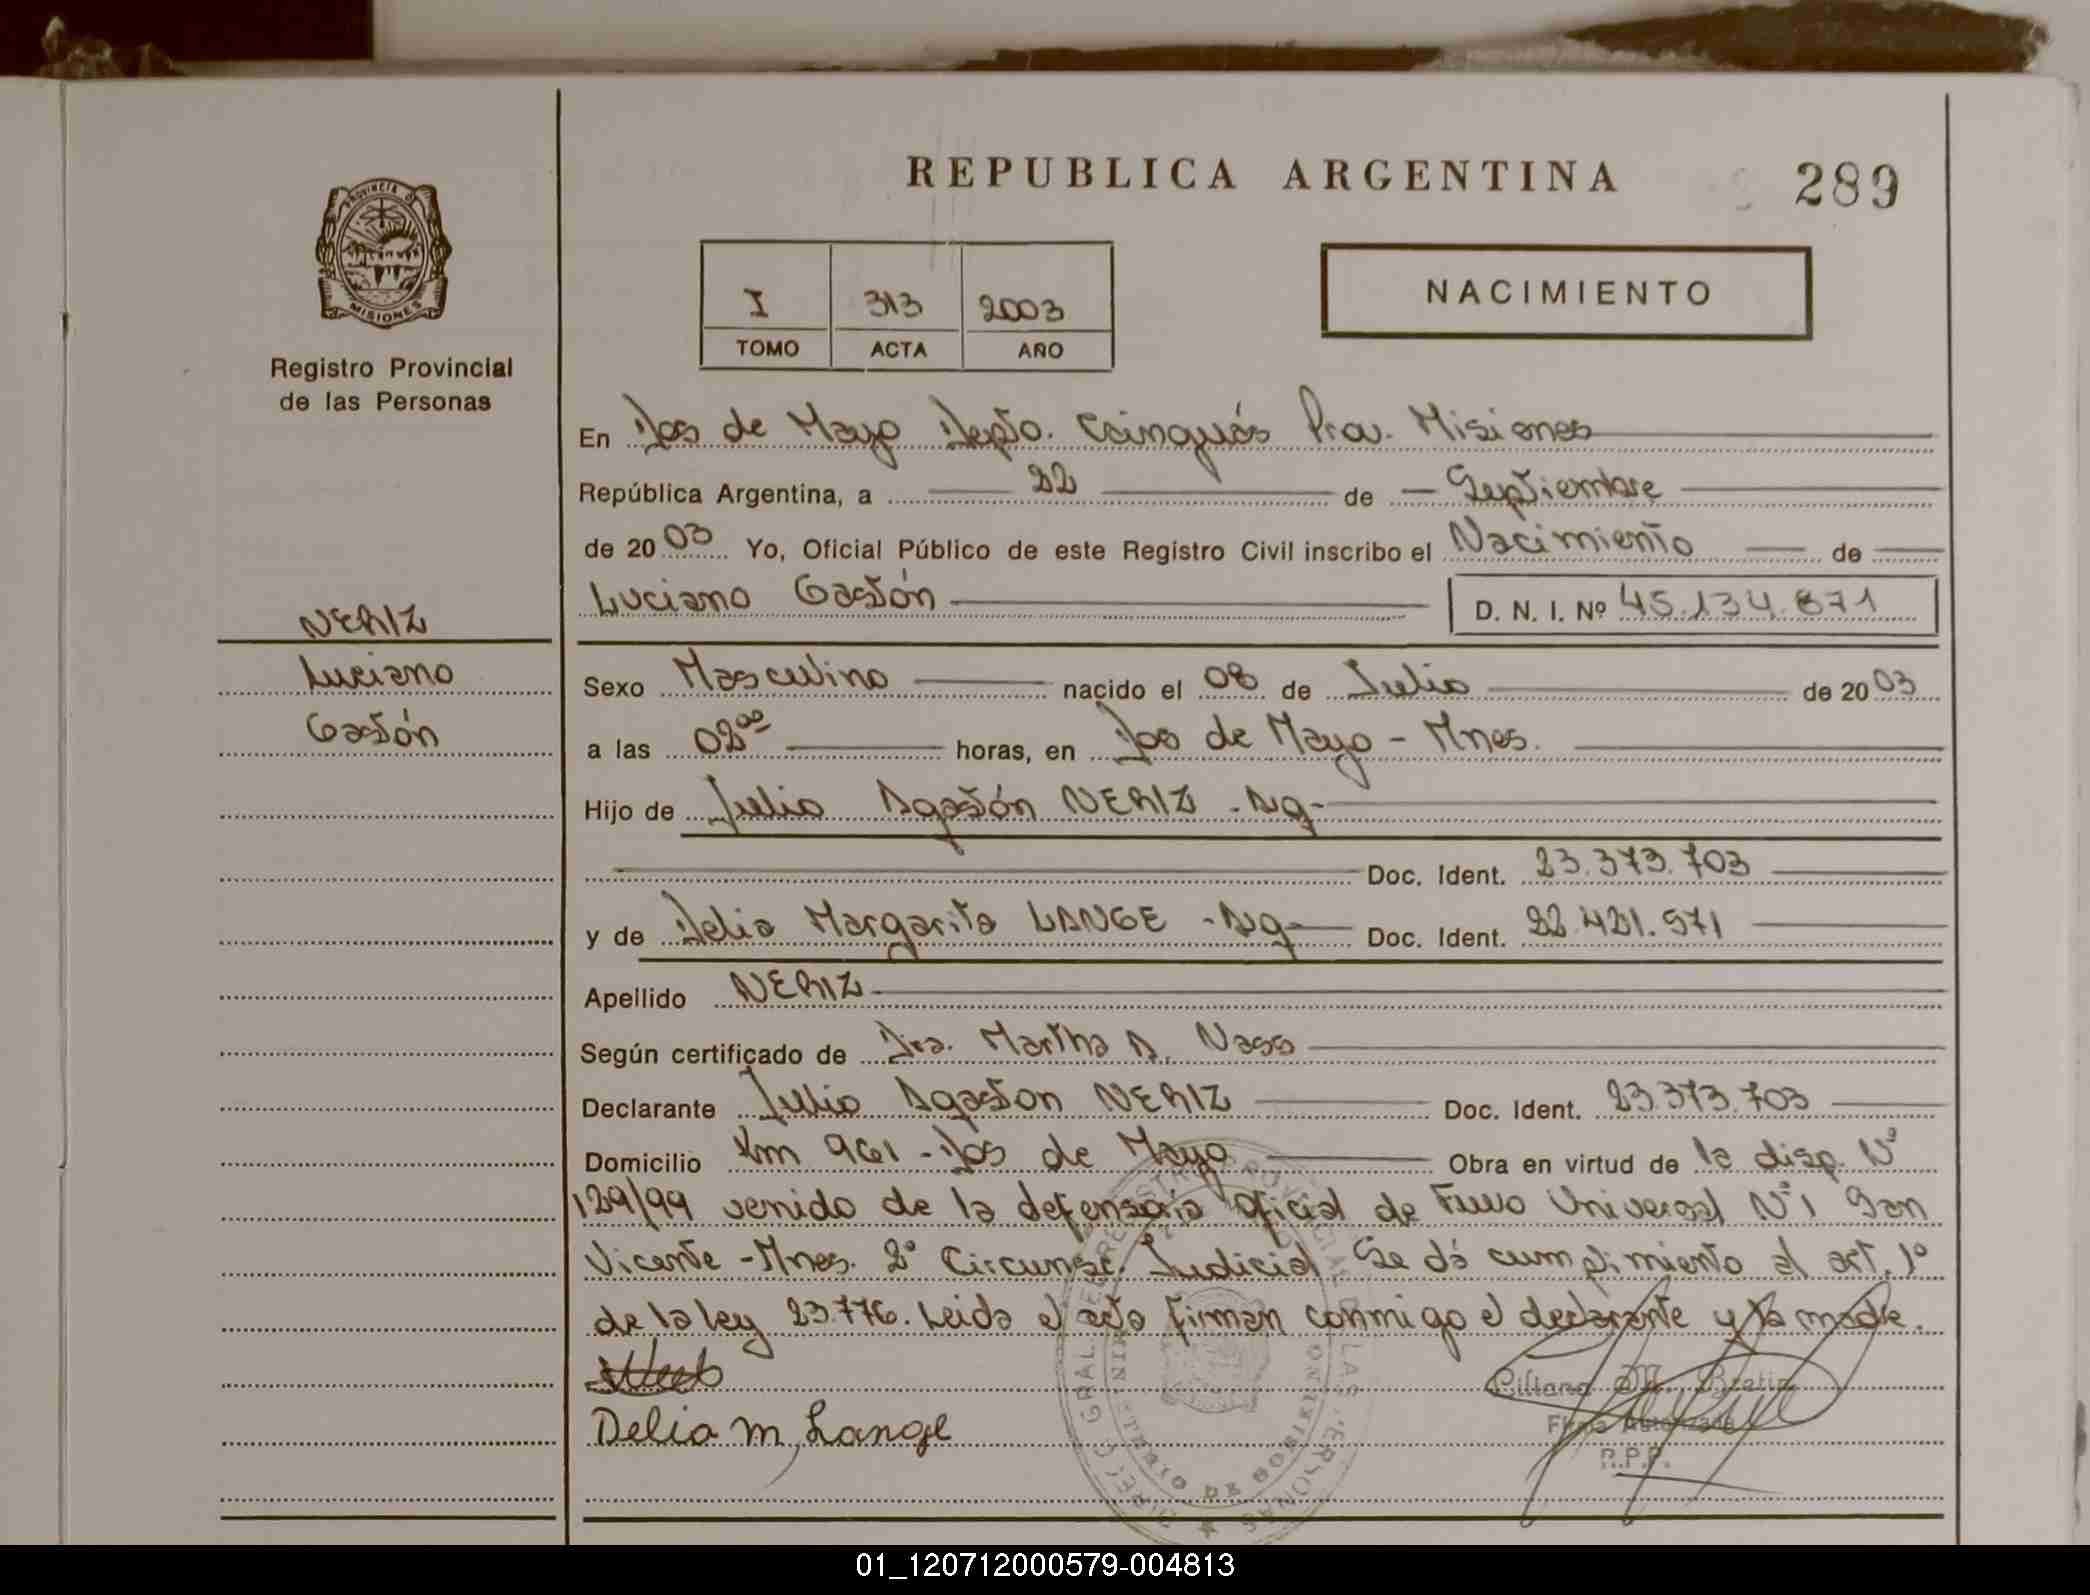 REPUBLICA ARGENTINA
289
PROVINCIA DE
MISIONES
Registro Provincial
de las Personas
I 313 2003
TOMO ACTA AÑO
NACIMIENTO
En Dos de Mayo Depto. Cainguás Prov. Misiones
República Argentina, a 22 de Septiembre
de 2003 Yo, Oficial Público de este Registro Civil inscribo el Nacimiento de
Luciano Gastón D. N. I. Nº 45.134.871
NERIZ
Luciano
Gastón
Sexo Masculino nacido el 08 de Julio de 2003
a las 02⁰⁰ horas, en Dos de Mayo - Mnes.
Hijo de Julio Agastón NERIZ - Ag -
Doc. Ident. 23.373.703
y de Delia Margarita LANGE - Ag - Doc. Ident. 22.421.971
Apellido NERIZ
Según certificado de Dra. Martha A. Nass
Declarante Julio Agaston NERIZ Doc. Ident. 23.373.703
Domicilio Km 961 - Dos de Mayo Obra en virtud de la disp. Nº
129/99 venido de la defensoría oficial de Fuero Universal Nº 1 San
Vicente - Mnes. 2º Circunsc. Judicial Se dá cumplimiento al art. 1º
de la ley 23.776. Leida el acta firman conmigo el declarante y la madre.
Delia M. Lange
Liliana M.
Firma Autorizada
R.P.P.
01_120712000579-004813